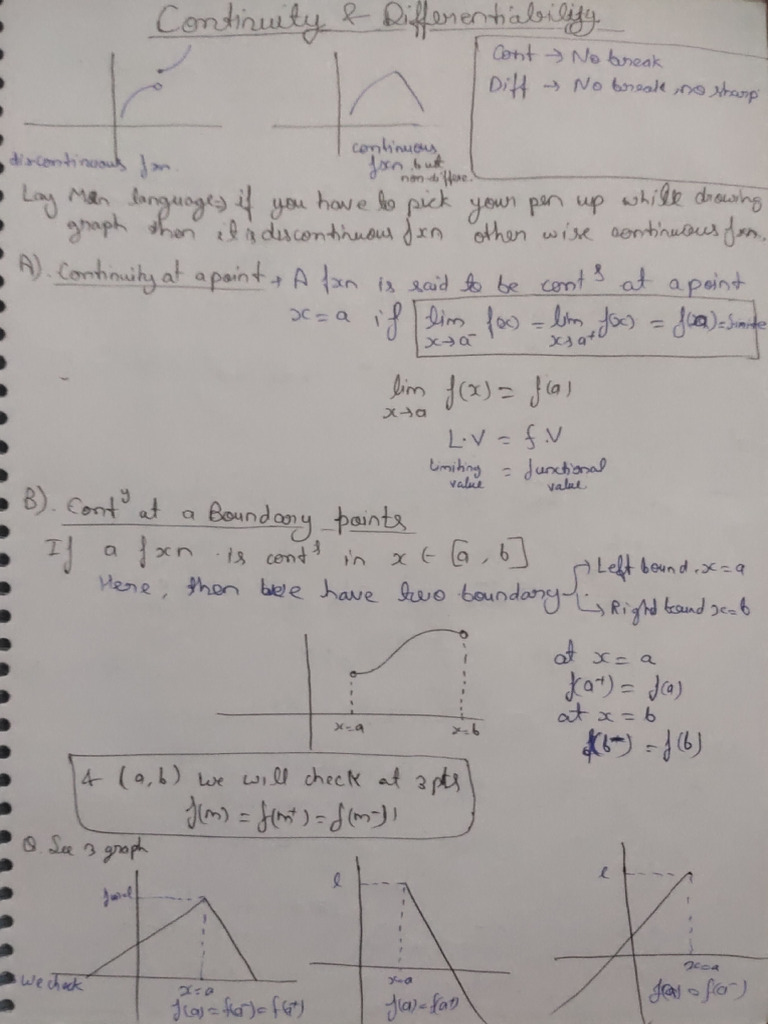 Continuity & Differentiability
Cont → No break
Diff → No break, no sharp
discontinuous fxn.
continuous
fxn, but
non differe.
Lay Men language → if you have to pick your pen up while drawing
graph then it is discontinuous fxn other wise continuous fxn.
A). Continuity at a point → A fxn is said to be contˢ at a point
x = a if lim x→a⁻ f(x) = lim x→a⁺ f(x) = f(a) = finite
lim x→a f(x) = f(a)
L.V = f.V
Limiting value = functional value
B). Contʸ at a Boundary points
If a fxn is contˢ in x ∈ [a, b]
Here, then we have two boundary
→ Left bound. x = a
→ Right bound x = b
at x = a
f(a⁺) = f(a)
at x = b
f(b⁻) = f(b)
x=a
x=b
(a, b) we will check at 3 pts
f(m) = f(m⁺) = f(m⁻)
Q. See 3 graph
We check
x = a
f(a) = f(a⁻) = f(a⁺)
l
x=a
f(a) = f(a⁺)
l
x=a
f(a) = f(a⁻)